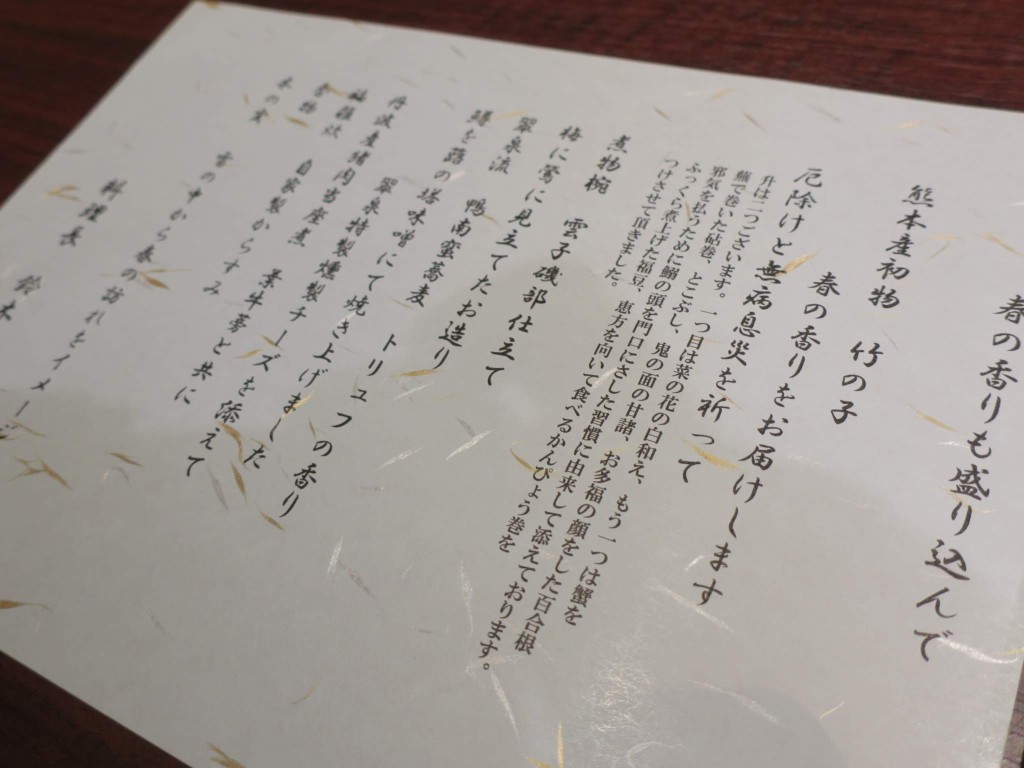 春の香りも盛り込んで
熊本産初物　竹の子
春の香りをお届けします
厄除けと無病息災を祈って
升は二つございます。一つ目は菜の花の白和え、もう一つは蟹を
蕪で巻いた砧巻、とこぶし、鬼の面の甘諸、お多福の顔をした百合根
邪気を払うために鰯の頭を門口にさした習慣に由来して添えております。
ふっくら煮上げた福豆、恵方を向いて食べるかんぴょう巻を
つけさせて頂きました。
煮物椀　雲子磯部仕立て
梅に鶯に見立てたお造り
翠泉流　鴨南蛮蕎麦　トリュフの香り
鰆を蕗の塔味噌にて焼き上げました
丹波産猪肉当座煮　葉牛蒡と共に
翠泉特製燻製チーズを添えて
自家製からすみ
食物
木の実
雪の中から春の訪れをイメージ
料理長　鈴木